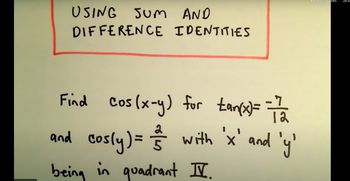 USING SUM AND
DIFFERENCE IDENTITIES
Find cos(x-y) for tan(x) = -7/12
and cos(y) = 2/5 with 'x' and 'y'
being in quadrant IV.